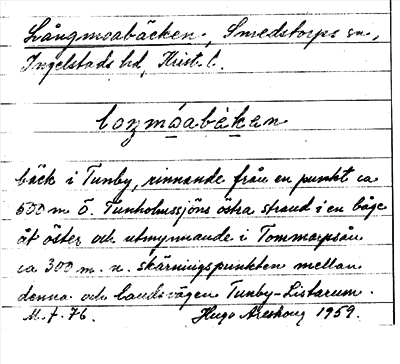 Långmoabäcken, Smedstorps sn,
Ingelstads hd, Krist. l.
loŋmóabäken
bäck i Tunby, rinnande från en punkt ca
500 m ö. Tunholmssjöns östra strand i en båge
åt öster och utmynnande i Tommarpsån
ca 300 m. n. skärningspunkten mellan
denna och landsvägen Tunby-Listarum.
M. 7. 76. Hugo Areskoug 1959.